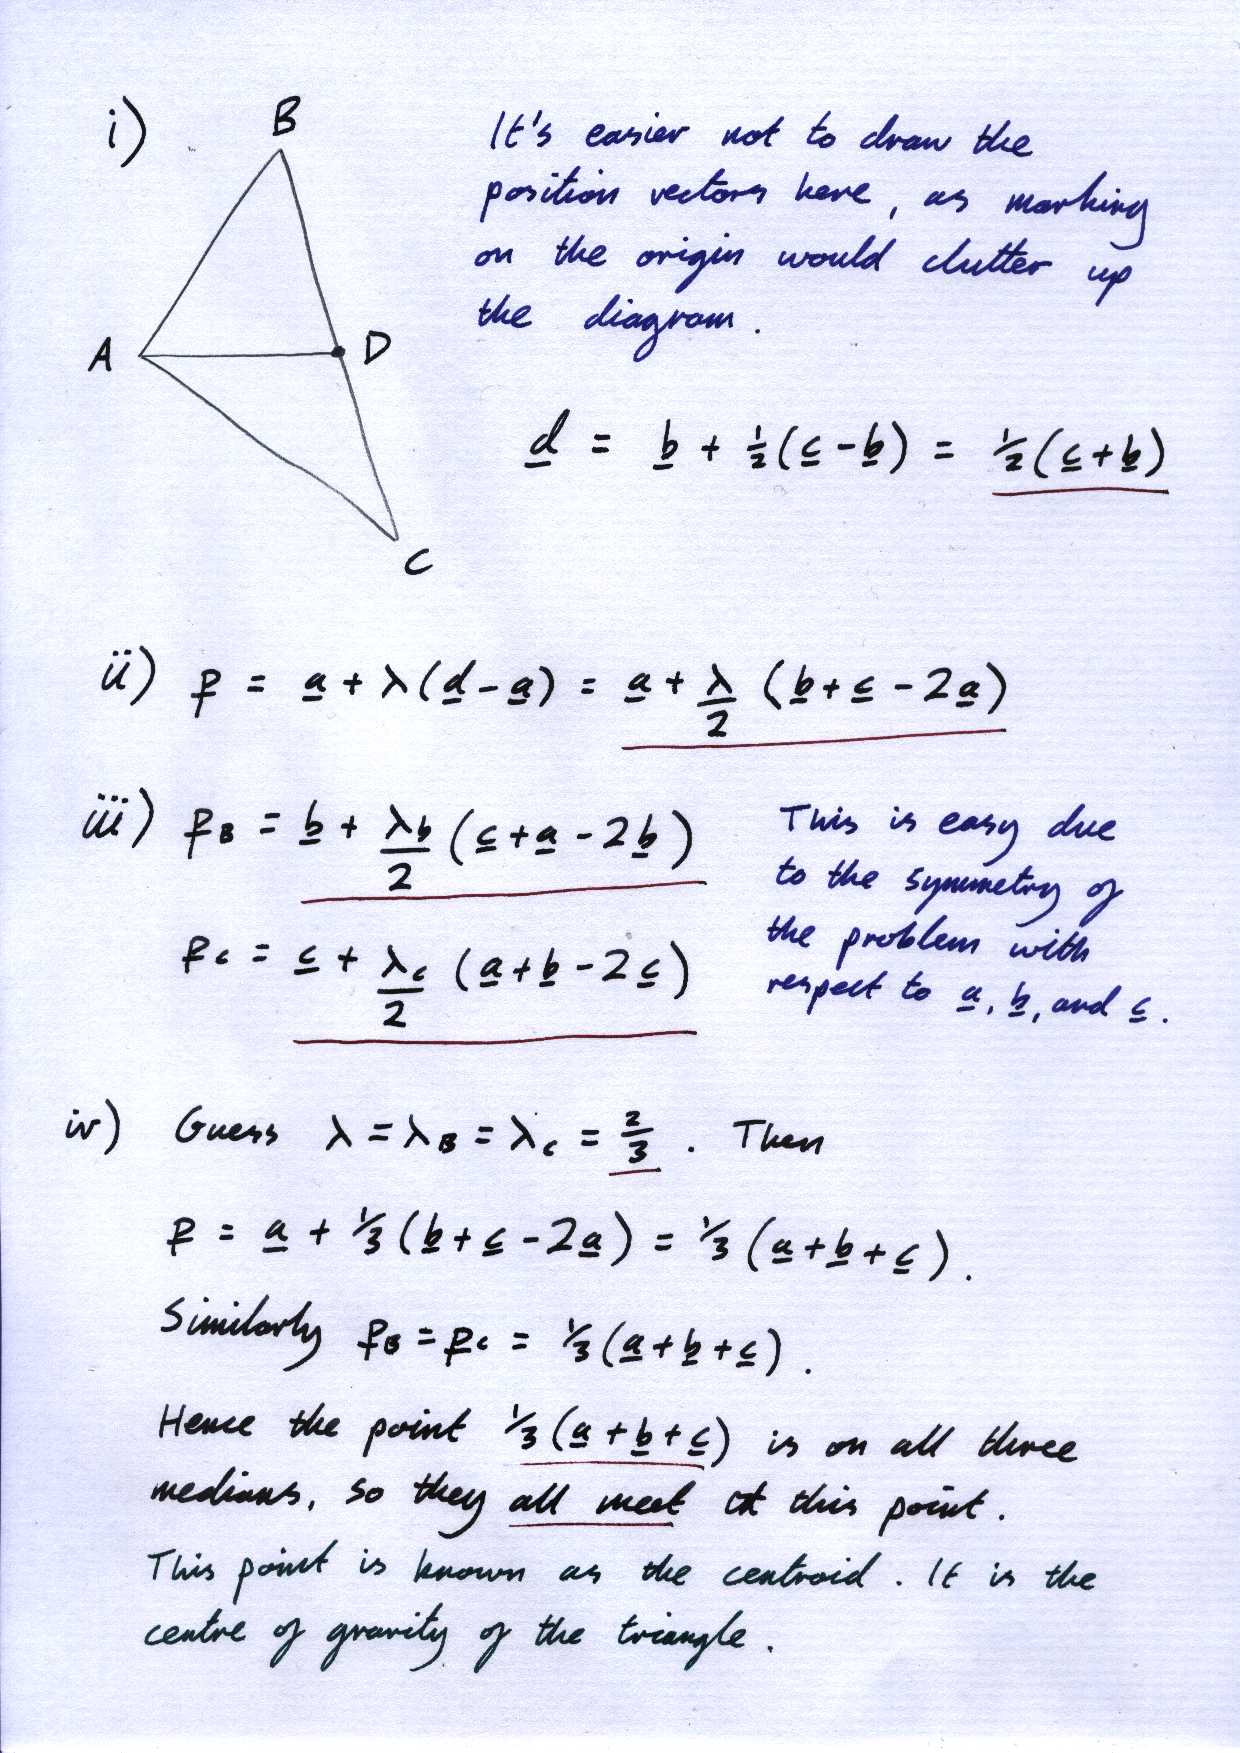 i)
B
A
D
C
It's easier not to draw the
position vectors here, as marking
on the origin would clutter up
the diagram.
d = b + ½(c - b) = ½(c + b)
ii) r = a + λ(d - a) = a + λ/2 (b + c - 2a)
iii) r_B = b + λ_b/2 (c + a - 2b)
r_c = c + λ_c/2 (a + b - 2c)
This is easy due
to the symmetry of
the problem with
respect to a, b, and c.
iv) Guess λ = λ_B = λ_c = 2/3 . Then
r = a + ⅓(b + c - 2a) = ⅓(a + b + c).
Similarly r_B = r_c = ⅓(a + b + c).
Hence the point ⅓(a + b + c) is on all three
medians, so they all meet at this point.
This point is known as the centroid. It is the
centre of gravity of the triangle.